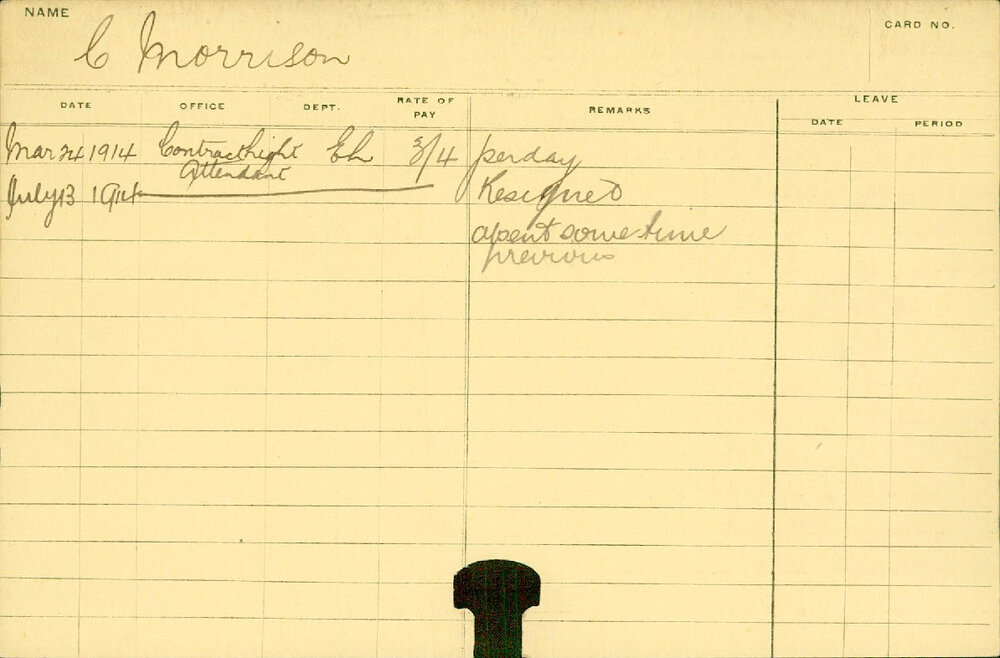 NAME
CARD NO.
C Morrison
DATE OFFICE DEPT. RATE OF PAY REMARKS LEAVE
DATE PERIOD
Mar 24 1914 Contract Light Attendant El 3/4 per day
July 13 1914 Resigned
apent some time
previous